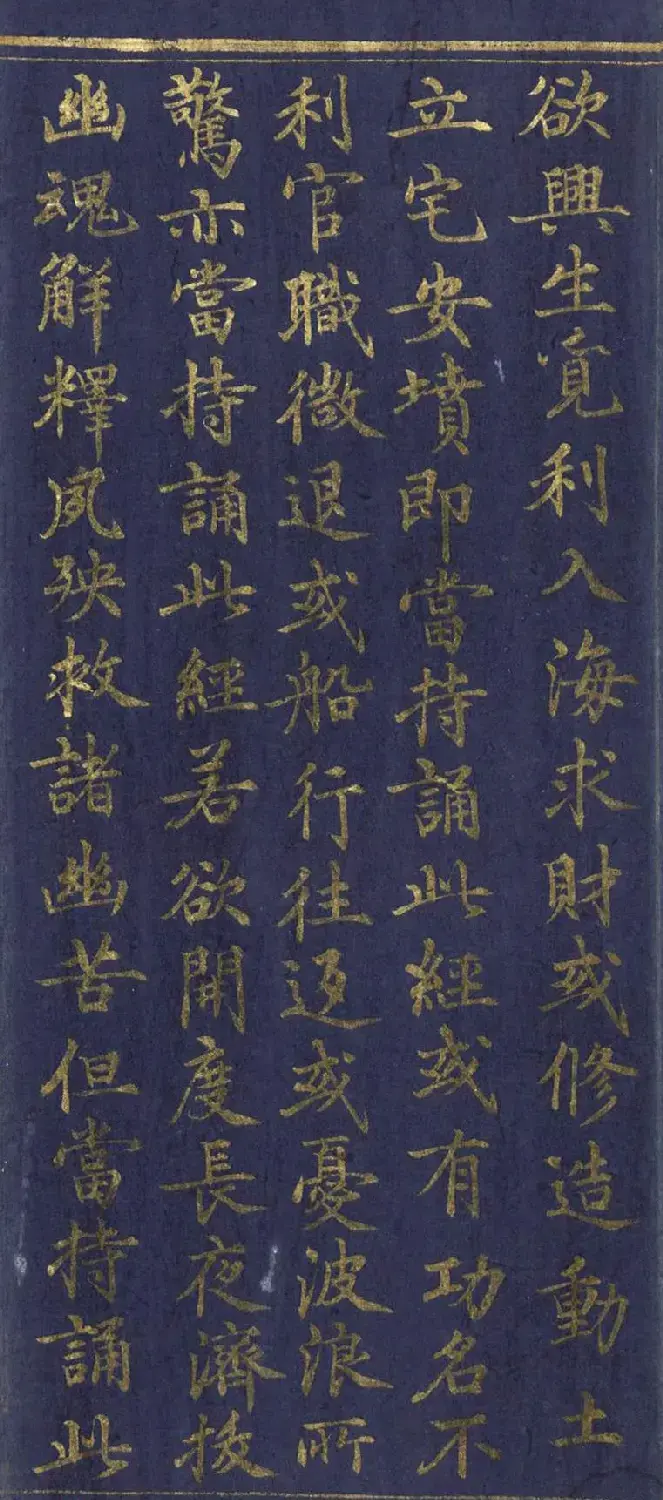 欲興生覓利入海求財或修造動土
立宅安墳即當持誦此經或有功名不
利官職微退或船行往返或憂波浪所
驚亦當持誦此經若欲開度長夜濟拔
幽魂解釋夙殃救諸幽苦但當持誦此